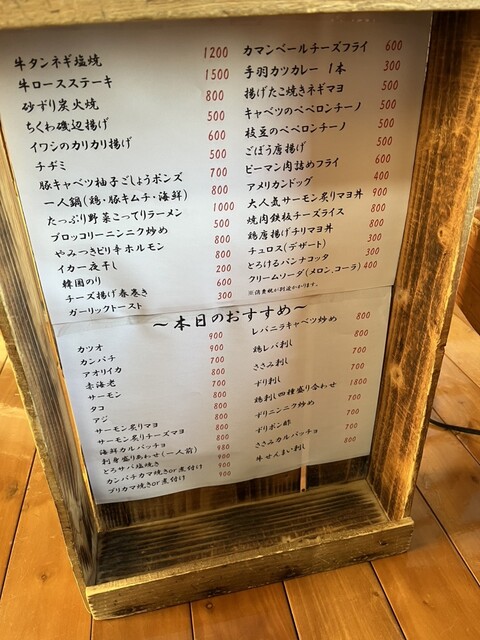 牛タンネギ塩焼 1200
牛ロースステーキ 1500
砂ずり炭火焼 800
ちくわ磯辺揚げ 500
イワシのカリカリ揚げ 600
チヂミ 500
豚キャベツ柚子ごしょうポンズ 700
一人鍋(鶏・豚キムチ・海鮮) 800
たっぷり野菜こってりラーメン 1000
ブロッコリーニンニク炒め 500
やみつきピリ辛ホルモン 800
イカ一夜干し 600
韓国のり 200
チーズ揚げ春巻き 600
ガーリックトースト 300
カマンベールチーズフライ 600
手羽カツカレー 1本 300
揚げたこ焼きネギマヨ 500
キャベツのペペロンチーノ 500
枝豆のペペロンチーノ 500
ごぼう唐揚げ 500
ピーマン肉詰めフライ 600
アメリカンドッグ 400
大人気サーモン炙りマヨ丼 900
焼肉鉄板チーズライス 800
鶏唐揚げチリマヨ丼 800
チュロス(デザート) 300
とろけるパンナコッタ 300
クリームソーダ(メロン、コーラ) 400
※消費税が別途かかります。
〜本日のおすすめ〜
カツオ 900
カンパチ 900
アオリイカ 700
赤海老 800
サーモン 700
タコ 700
アジ 800
サーモン炙りマヨ 800
サーモン炙りチーズマヨ 800
海鮮カルパッチョ 800
刺身盛りあわせ(一人前) 980
とろサバ塩焼き 900
カンパチカマ焼きor煮付け 900
ブリカマ焼きor煮付け 900
レバニラキャベツ炒め 800
鶏レバ刺し 800
ささみ刺し 700
ずり刺し 700
鶏刺し四種盛り合わせ 1800
ずりニンニク炒め 700
ずりポン酢 700
ささみカルパッチョ 700
牛せんまい刺し 800